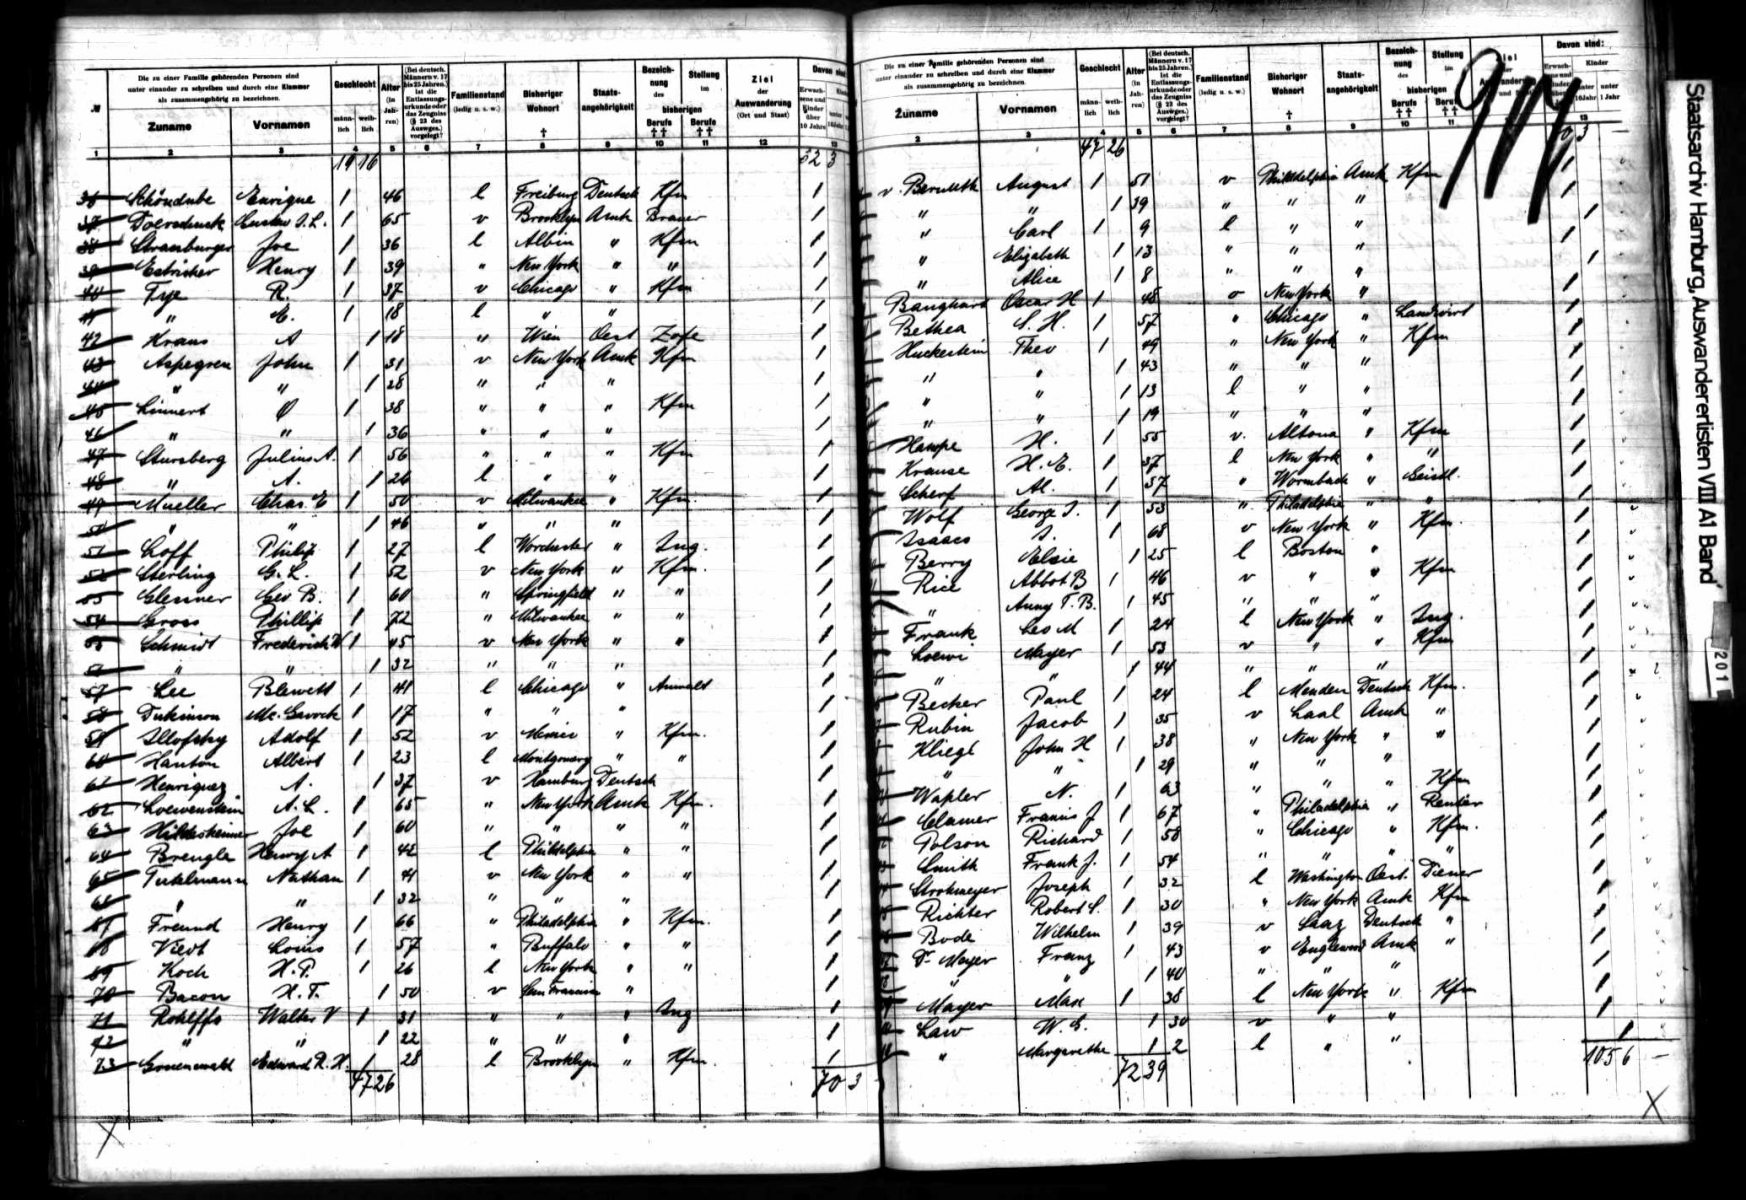 Die zu einer Familie gehörenden Personen sind
unter einander zu schreiben und durch eine Klammer
als zusammengehörig zu bezeichnen.
№ Zuname Vornamen Geschlecht männ-lich weib-lich Alter (in Jah-ren) Familienstand (ledig u. s. w.) Bisheriger Wohnort Staats-angehörigkeit Bezeich-nung des Stellung im bisherigen Berufs Berufe Ziel der Auswanderung (Ort und Staat)
1 2 3 4 5 6 7 8 9 10 11 12 13
36 Schöndube Enrique 1 46 l Freiburg Deutsch Kfm 1
37 Doerschuck Gustav 1 65 v Brooklyn Amk Brauer 1
38 Strassburger Joe 1 36 l Albin " Kfm 1
39 Estricher Henry 1 39 " New York " " 1
40 Frye R. 1 37 v Chicago " Kfm 1
41 " E. 1 18 l " " 1
42 Kraus A 1 18 " Wien Oest Zofe 1
43 Aspegren John 1 31 v New York Amk Kfm 1
44 " " 1 28 " " " 1
45 Linnert 1 38 " " " Kfm 1
46 " " 1 36 " " " 1
47 Stursberg Julius A. 1 56 " " " Kfm 1
48 " A. 1 26 l " " 1
49 Mueller Chas. E 1 50 v Milwaukee " Kfm. 1
50 " " 1 46 " " " 1
51 Loff Philip 1 27 l Worchester " Ing. 1
52 Sterling G. L. 1 52 v New York " Kfm. 1
53 Glenner Geo B. 1 60 " Springfield " " 1
54 Gross Phillip 1 72 " Milwaukee " " 1
55 Schmidt Frederick W 1 45 v New York " " 1
56 " " 1 32 " " " 1
57 Lee Blewett 1 41 l Chicago " Anwalt 1
58 Dickinson Mc. Gavock 1 17 " " " 1
59 Illofsky Adolf 1 52 v " Kfm. 1
60 Hanton Albert 1 23 l Montgomery " " 1
61 Henriquez A. 1 37 v Hamburg Deutsch 1
62 Loewenstein A. L. 1 65 " New York Amk Kfm. 1
63 Hildesheimer Joe 1 60 " " " " 1
64 Brengle Henry A 1 42 l Philadelphia " " 1
65 Tutelmann Nathan 1 41 v New York " " 1
66 " " 1 32 " " " 1
67 Freund Henry 1 66 " Philadelphia " Kfm. 1
68 Viedt Louis 1 57 " Buffalo " " 1
69 Koch H. P. 1 26 l New York " " 1
70 Bacon H. T. 1 50 v San Francisco " 1
71 Rohlffs Walter V 1 31 " " " Ing 1
72 " " 1 22 " " " 1
73 Gruenewald Edward R. H. 1 28 l Brooklyn " Kfm. 1
47 26 70 3
Die zu einer Familie gehörenden Personen sind
unter einander zu schreiben und durch eine Klammer
als zusammengehörig zu bezeichnen.
Zuname Vornamen Geschlecht männ-lich weib-lich Alter (in Jah-ren) Familienstand (ledig u. s. w.) Bisheriger Wohnort Staats-angehörigkeit Bezeich-nung des Stellung im bisherigen Berufs Davon sind: Kinder unter 1 Jahr
2 3 4 5 6 7 8 9 10 11 13
47 26
v. Bernuth August 1 51 v Philadelphia Amk Kfm 1
" " 1 39 " " " 1
" Carl 1 9 l " " 1
" Elizabeth 1 13 " " " 1
" Alice 1 8 " " " 1
Banghart Oscar H 1 48 v New York " 1
Bethea S. H. 1 57 " Chicago " Landwirt 1
Huckestein Theo 1 49 " New York " Kfm 1
" " 1 43 " " " 1
" " 1 13 l " " 1
" " 1 19 " " " 1
Hampe H. 1 55 v. Altona " Kfm 1
Krause H. E. 1 37 l New York " " 1
Scherf Al. 1 57 " Wormbach " Geistl. 1
Wolf George 1 53 " Philadelphia " " 1
Isaacs S. 1 68 v New York " Kfm. 1
Berry Elsie 1 25 l Boston " 1
Rice Abbot B 1 46 v " " Kfm 1
" Anny T. B. 1 45 " " " 1
Frank Leo M 1 24 l New York " Ing. 1
Loewi Mayer 1 53 v " " Kfm 1
" " 1 44 " " " 1
Becker Paul 1 24 l Menden Deutsch Kfm. 1
Rubin Jacob 1 35 v Laal Amk " 1
Kliegl John H 1 38 " New York " " 1
" " 1 29 " " " 1
Wapler N. 1 63 " " " Kfm 1
Clamer Francis J 1 67 " Philadelphia " Rentier 1
Polson Richard 1 58 " Chicago " Kfm. 1
Smith Frank J. 1 54 " " " " 1
Strohmeyer Joseph 1 32 l Washington Oest. Diener 1
Richter Robert L. 1 30 " New York Amk Kfm 1
Bode Wilhelm 1 39 v Saaz Deutsch " 1
Dr Meyer Franz 1 43 v Englewood Amk " 1
" " 1 40 " " " 1
Mayer Max 1 38 l New York " Kfm 1
Law W. E. 1 30 v " " 1
" Margarethe 1 2 l " " 1
72 39 105 6 –
Staatsarchiv Hamburg, Auswandererlisten VIII A1 Band
201